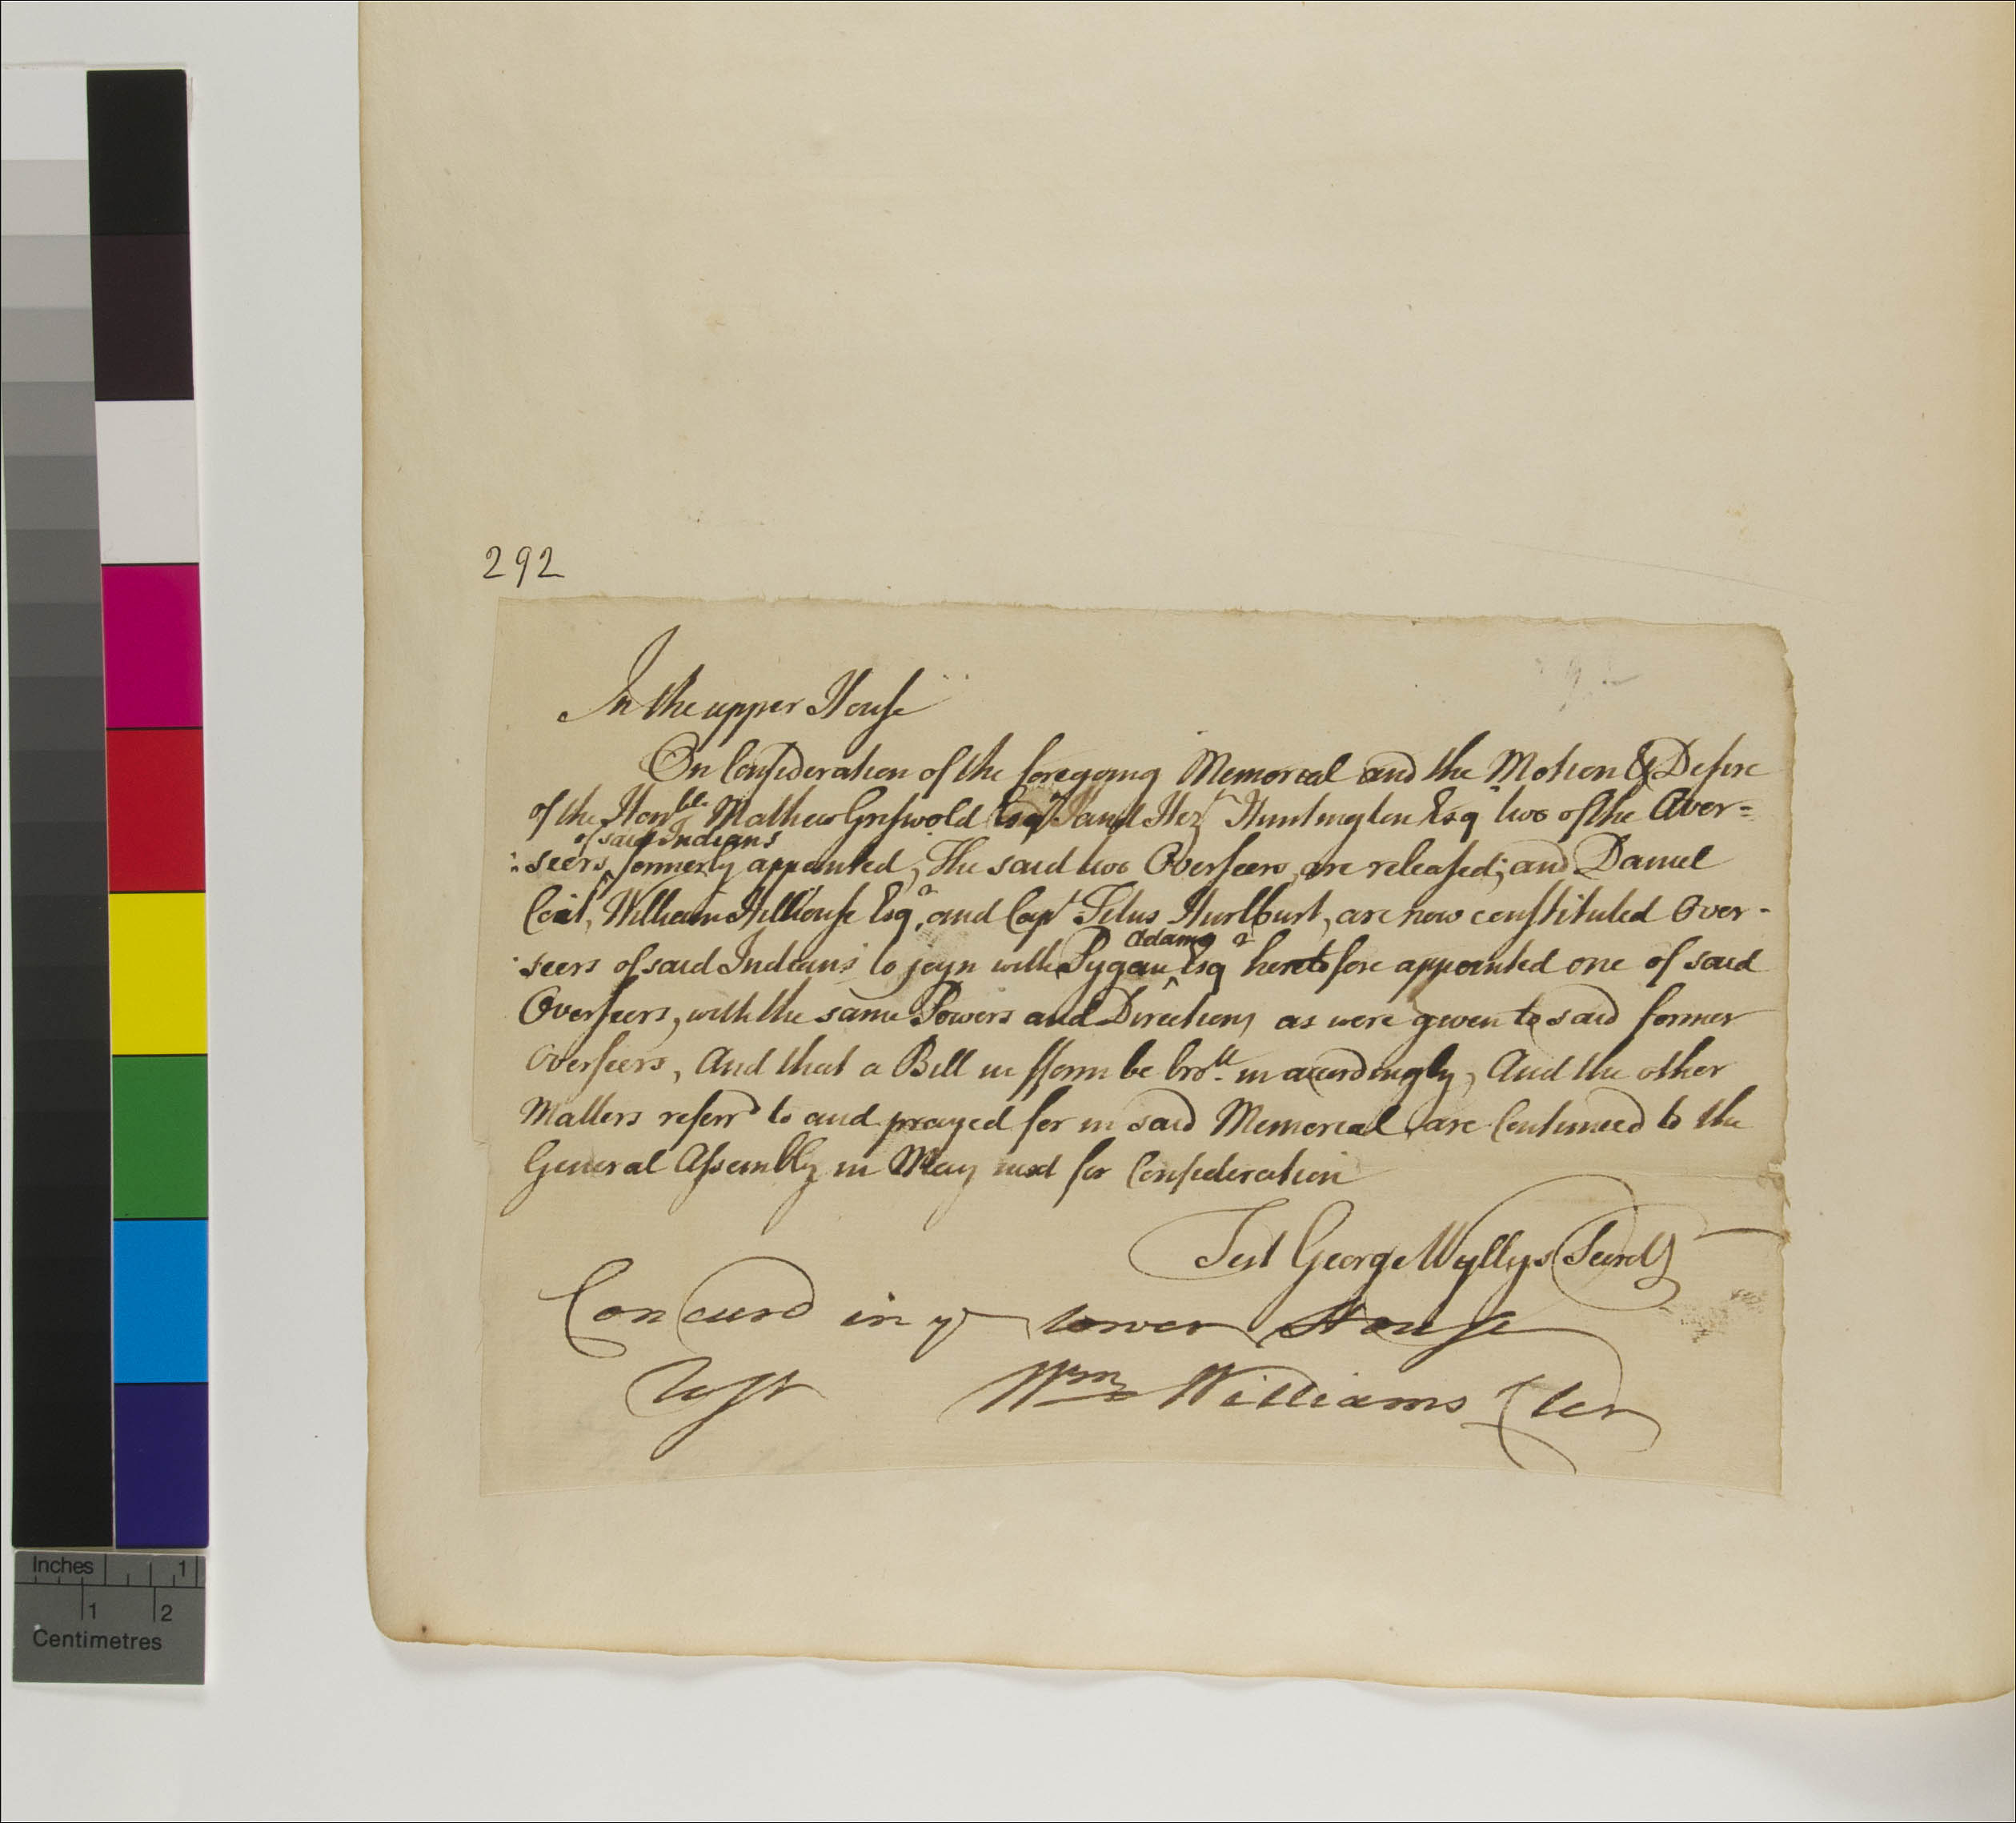 292
In the upper House
On Consideration of the foregoing Memorial and the Motion & Desire
of the Honble Mathew Griswold Esqr and Hezh Huntington Esqr two of the Over=
of said Indians
:seers ^ formerly appointed, The said two Overseers, are released; and Daniel
Coit, William Hillhouse Esqr, and Capt Titus Hurlburt, are now constituted Over-
Adams
seers of said Indians to joyn with Pygan ^ Esqr heretofore appointed one of said
Overseers, with the same Powers and Directions as were given to said former
Overseers, And that a Bill in fform be brott in accordingly, And the other
Matters referrd to and prayed for in said Memorial are Continued to the
General Assembly in May next for Consideration
Test George Wyllys Secrety
Concurd in ye lower House
Test Wm Williams Cler
Inches 1
1 2
Centimetres